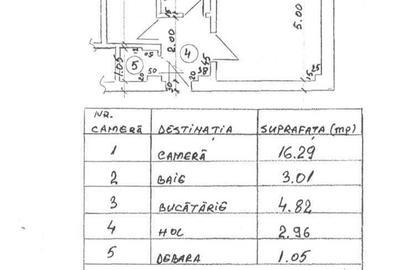 5.00
2.00
4
1.05
5
50
20
50
20
38
45
15
25
NR.
CAMERĂ DESTINAȚIA SUPRAFAȚA (mp)
1 CAMERĂ 16.29
2 BAIE 3.01
3 BUCĂTĂRIE 4.82
4 HOL 2.96
5 DEBARA 1.05